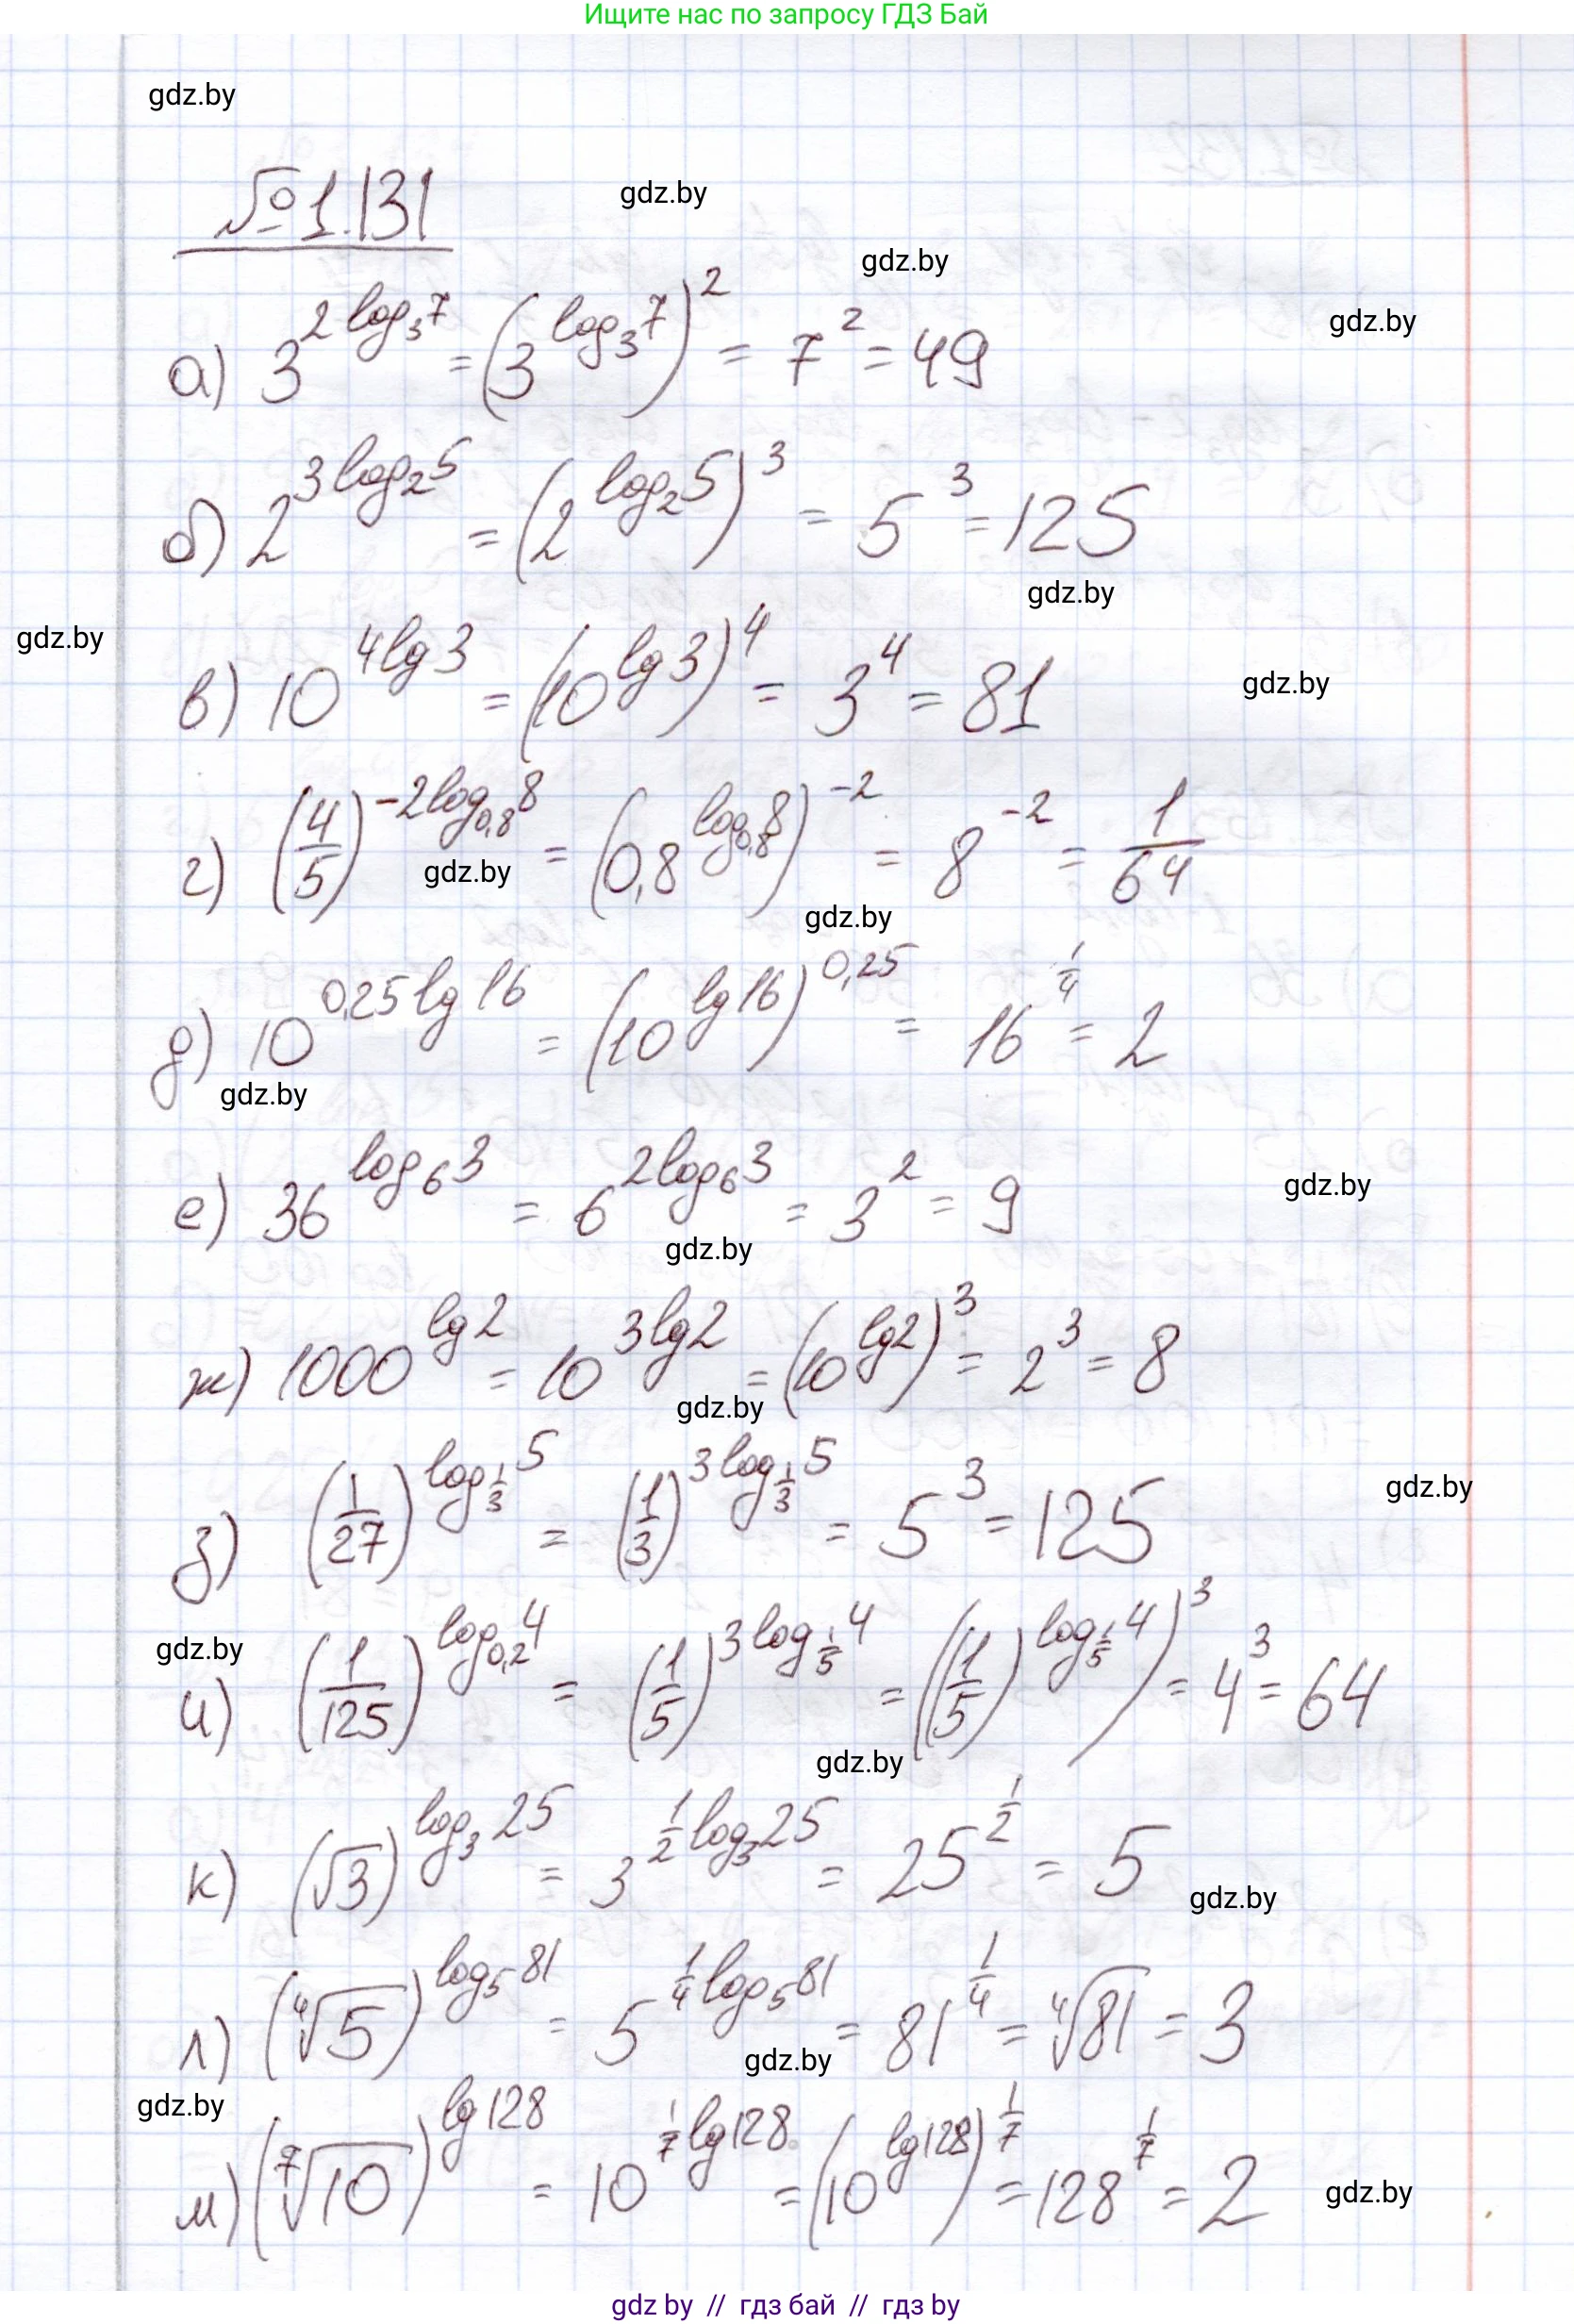 Ищите нас по запросу ГДЗ Бай
gdz.by
№1.131
gdz.by
gdz.by
gdz.by
а) 3^{2 log_3 7} = (3^{log_3 7})^2 = 7^2 = 49
б) 2^{3 log_2 5} = (2^{log_2 5})^3 = 5^3 = 125
gdz.by
gdz.by
в) 10^{4 lg 3} = (10^{lg 3})^4 = 3^4 = 81
gdz.by
г) (4/5)^{-2 log_{0,8} 8} = (0,8^{log_{0,8} 8})^{-2} = 8^{-2} = 1/64
gdz.by
gdz.by
д) 10^{0,25 lg 16} = (10^{lg 16})^{0,25} = 16^{1/4} = 2
gdz.by
е) 36^{log_6 3} = 6^{2 log_6 3} = 3^2 = 9
gdz.by
gdz.by
ж) 1000^{lg 2} = 10^{3 lg 2} = (10^{lg 2})^3 = 2^3 = 8
gdz.by
з) (1/27)^{log_{1/3} 5} = (1/3)^{3 log_{1/3} 5} = 5^3 = 125
gdz.by
gdz.by
и) (1/125)^{log_{0,2} 4} = (1/5)^{3 log_{1/5} 4} = ((1/5)^{log_{1/5} 4})^3 = 4^3 = 64
gdz.by
к) (√3)^{log_3 25} = 3^{1/2 log_3 25} = 25^{1/2} = 5
gdz.by
л) (⁴√5)^{log_5 81} = 5^{1/4 log_5 81} = 81^{1/4} = ⁴√81 = 3
gdz.by
gdz.by
м) (⁷√10)^{lg 128} = 10^{1/7 lg 128} = (10^{lg 128})^{1/7} = 128^{1/7} = 2
gdz.by
gdz.by // гдз бай // гдз by